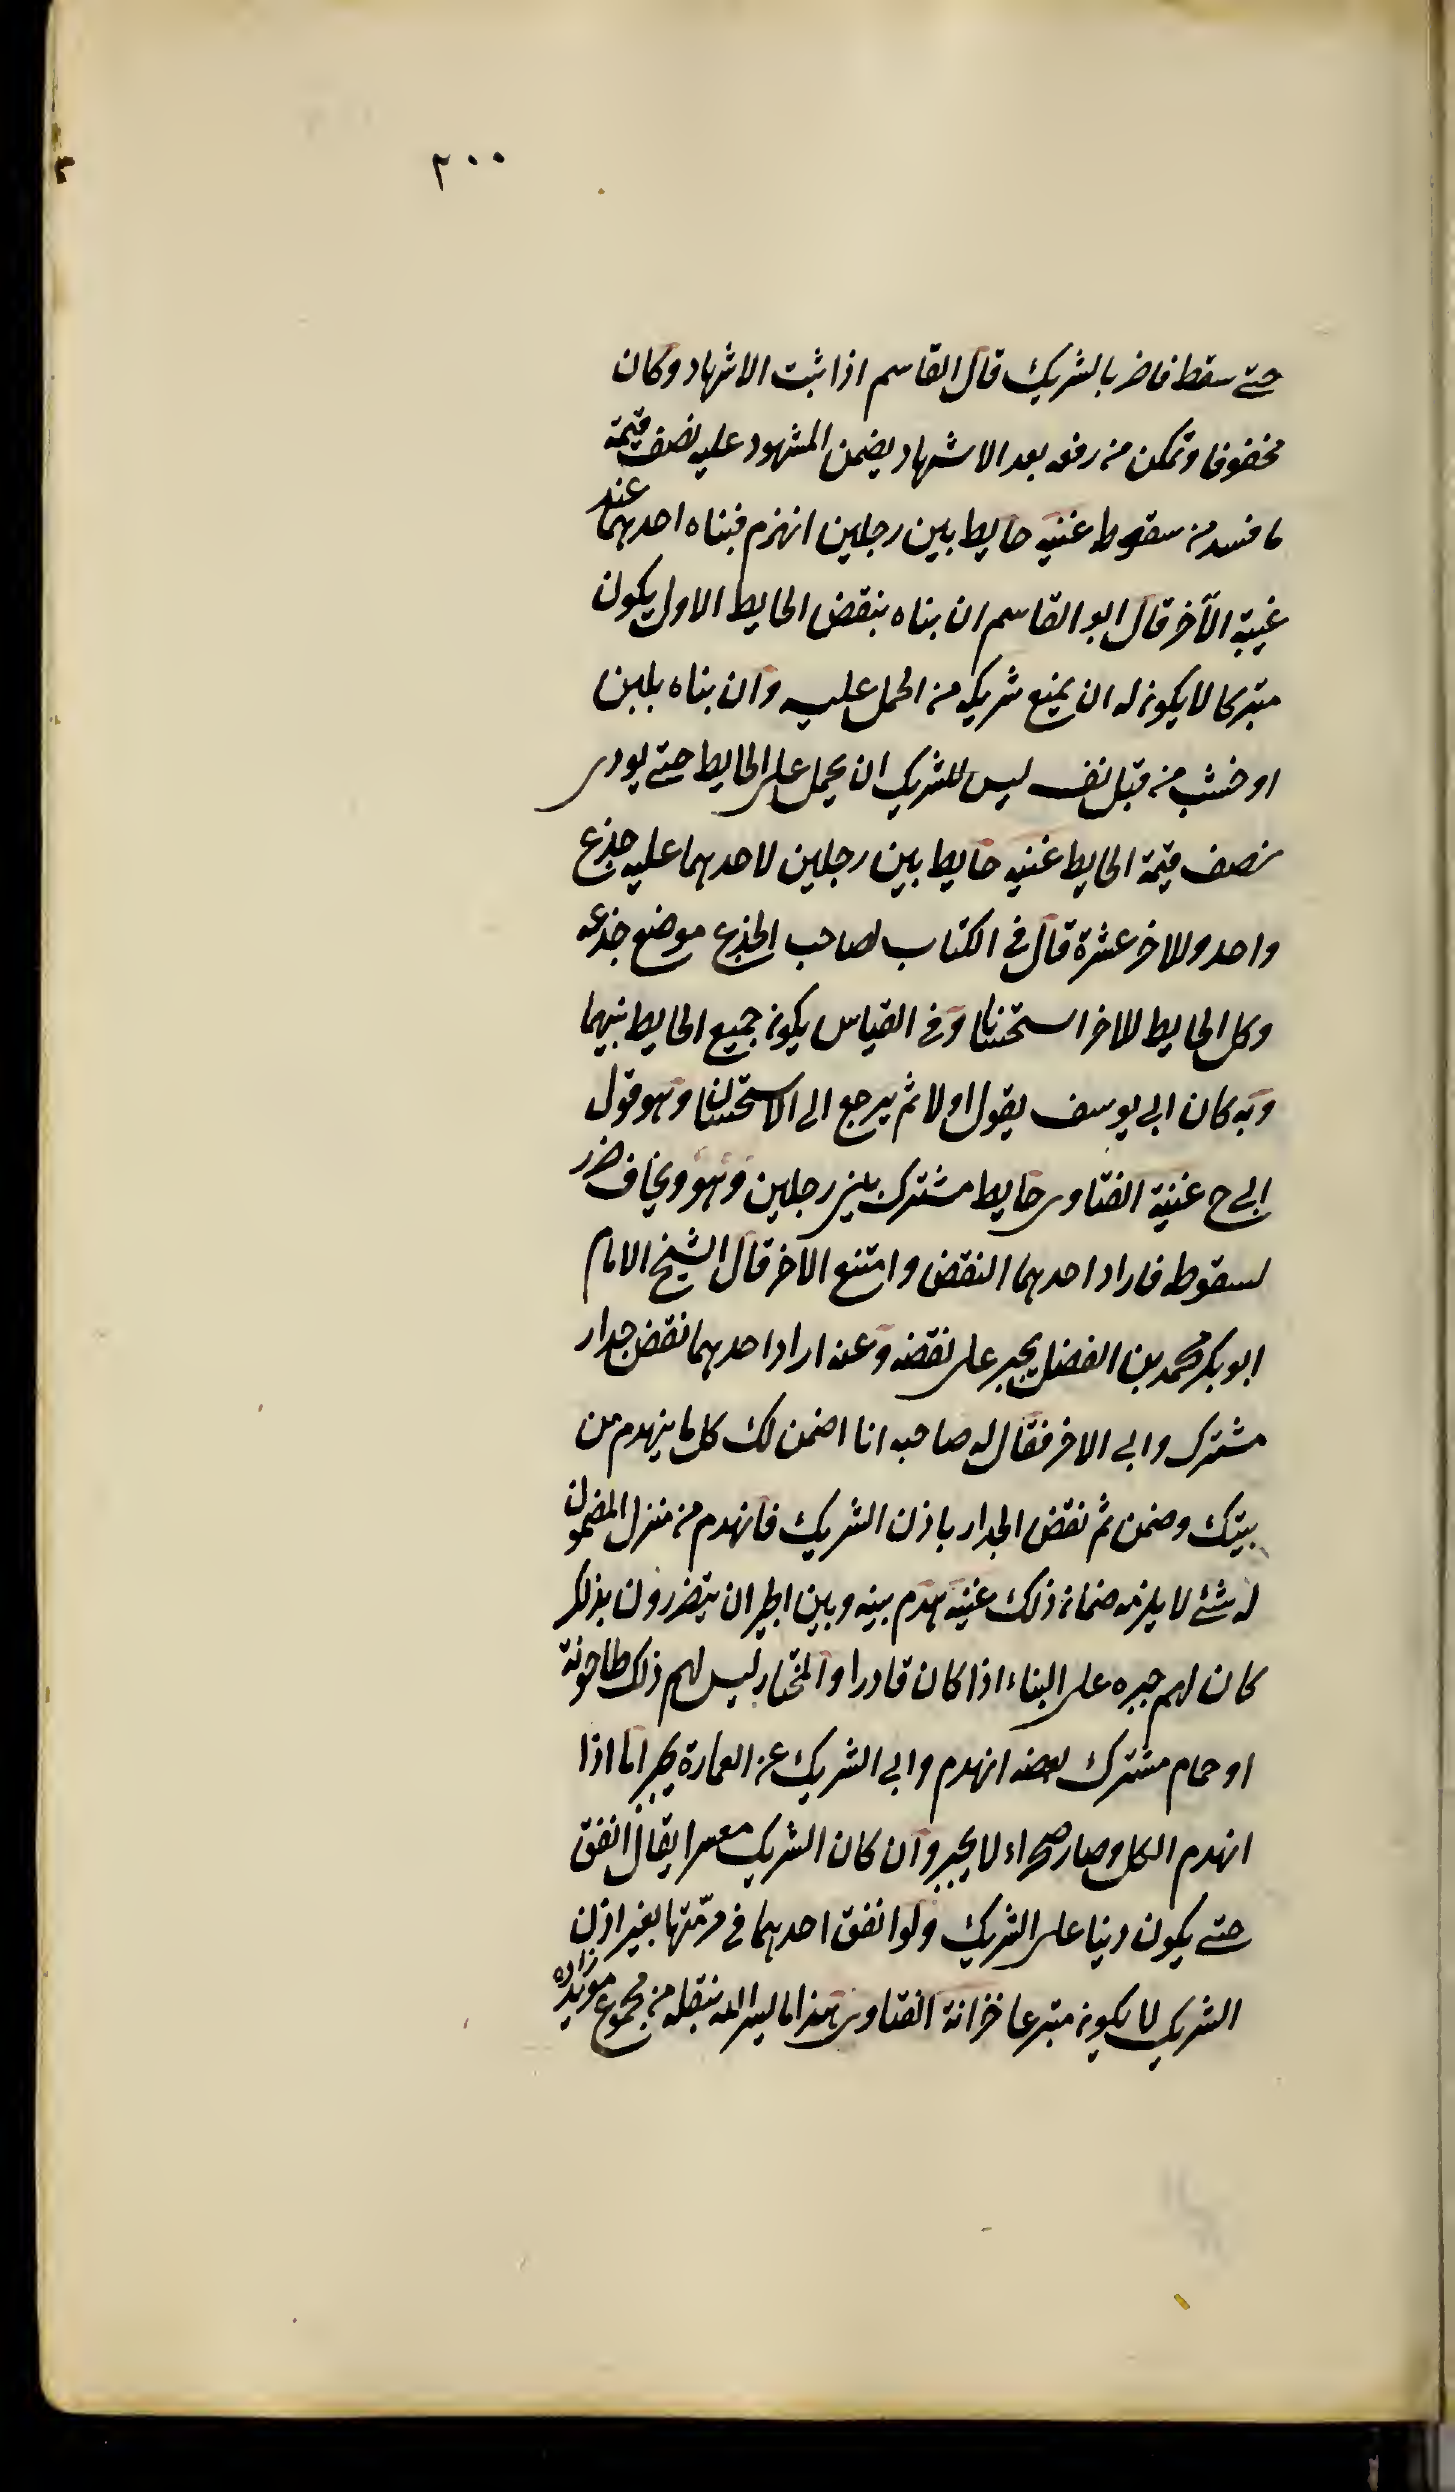 ٢٠٠
حتى سقط فاضر بالشريك قال القاسم اذا ثبت الاشهاد وكان
مخفوفا وتمكن من رفعه بعد الاشهاد يضمن المشهود عليه نصف قيمة
ما فسد من سقوطه غنيه حايط بين رجلين انهزم فبناه احدهما عند
غيبة الآخر قال ابو القاسم ان بناه بنقض الحايط الاول يكون
متبركا لا يكون له ان يمنع شريكه من الحمل عليه وان بناه بلبن
او خشب من قبل نفسه ليس للشريك ان يحمل على الحايط حتى يودى
نصف قيمة الحايط غنيه حايط بين رجلين لاحدهما عليه جذع
واحد وللاخر عشرة قال في الكتاب لصاحب الجذع موضع جذعه
وكل الحايط للاخر استحسانا وفى القياس يكون جميع الحايط بينهما
وبه كان ابى يوسف يقول اولا ثم يرجع الى الاستحسان وهو قول
ابى ح غنية الفتاوى حايط مشترك بين رجلين وهو ويخاف ضرر
لسقوطه فاراد احدهما النقض وامتنع الآخر قال الشيخ الامام
ابو بكر محمد بن الفضل يجبر على نقضه وعنه اراد احدهما نقض جدار
مشترك وابى الاخر فقال له صاحبه انا اضمن لك كل ما ينهدم من
بيتك وضمن ثم نقض الجدار باذن الشريك فانهدم من منزل المضمون
له شئ لا يلزمه ضمان ذلك غنيه هدم بيته وبين الجيران يتضررون بذلك
كان لهم جبره على البناء اذا كان قادرا والمختار ليس لهم ذلك طاحونة
او حمام مشترك بعضه انهدم وابى الشريك عن العمارة يجبر اما اذا
انهدم الكل وصار صحراء لا يجبر وان كان الشريك معسرا يقال انفق
حتى يكون دينا على الشريك ولو انفق احدهما في مرمّتها بغير اذن
الشريك لا يكون متبرعا خزانة الفتاوى هذا ما يسر الله بنقله من مجموع مويد زاده